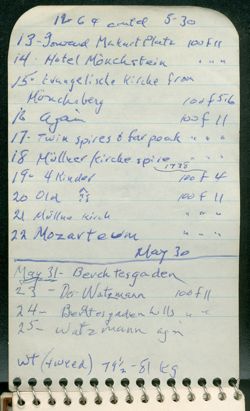 12 64 contd 5-30
13- Toward Makart Platz 100 f 11
14- Hotel Mönchstein " " "
15- Evangelische Kirche from
Mönchsberg 100 f 5.6
16 Again 100 f 11
17- Twin spires & far peak " " "
18 Müllner Kirche spire " " "
1738
19- 4 Kinder 100 f 4
20 Old 100 f 11
21 Müllner Kirch " " "
22 Mozarteum " " "
May 30
May 31- Berchtesgaden
23- Der Watzmann 100 f 11
24- Berchtesgaden hills " "
25- Watzmann again
wt (4 weed) 79 1/2 - 81 kg